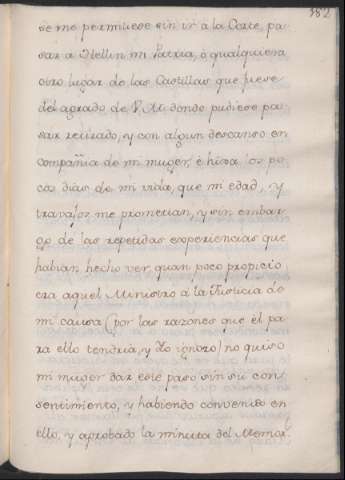 382
se me permitiese sin ir a la Corte, pa
sar a Hellin mi Patria, ô qualquiera
otro lugar de las Castillas que fuese
del agrado de V.M. donde pudiese pa
sar retirado, y con algun descanso en
compañia de mi muger, è hixa los po
cos dias de mi vida, que mi edad, y
travajos me prometian, y sin embar
go de las repetidas experiencias que
habian hecho ver quan poco propicio
era aquel Ministro a la Justicia de
mi causa (por las razones que èl pa
ra ello tendria, y Yo ignoro) no quiso
mi muger dar este paso sin su con
sentimiento, y habiendo convenido en
ello, y aprobado la minuta del Memor.